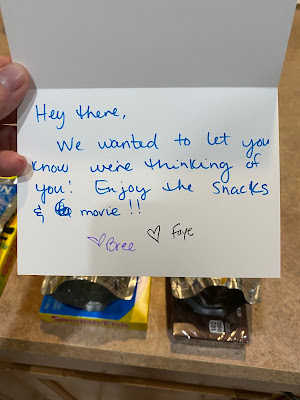 Hey there,
We wanted to let you
know we're thinking of
you! Enjoy the snacks
& movie!!
♡Bree ♡ Faye